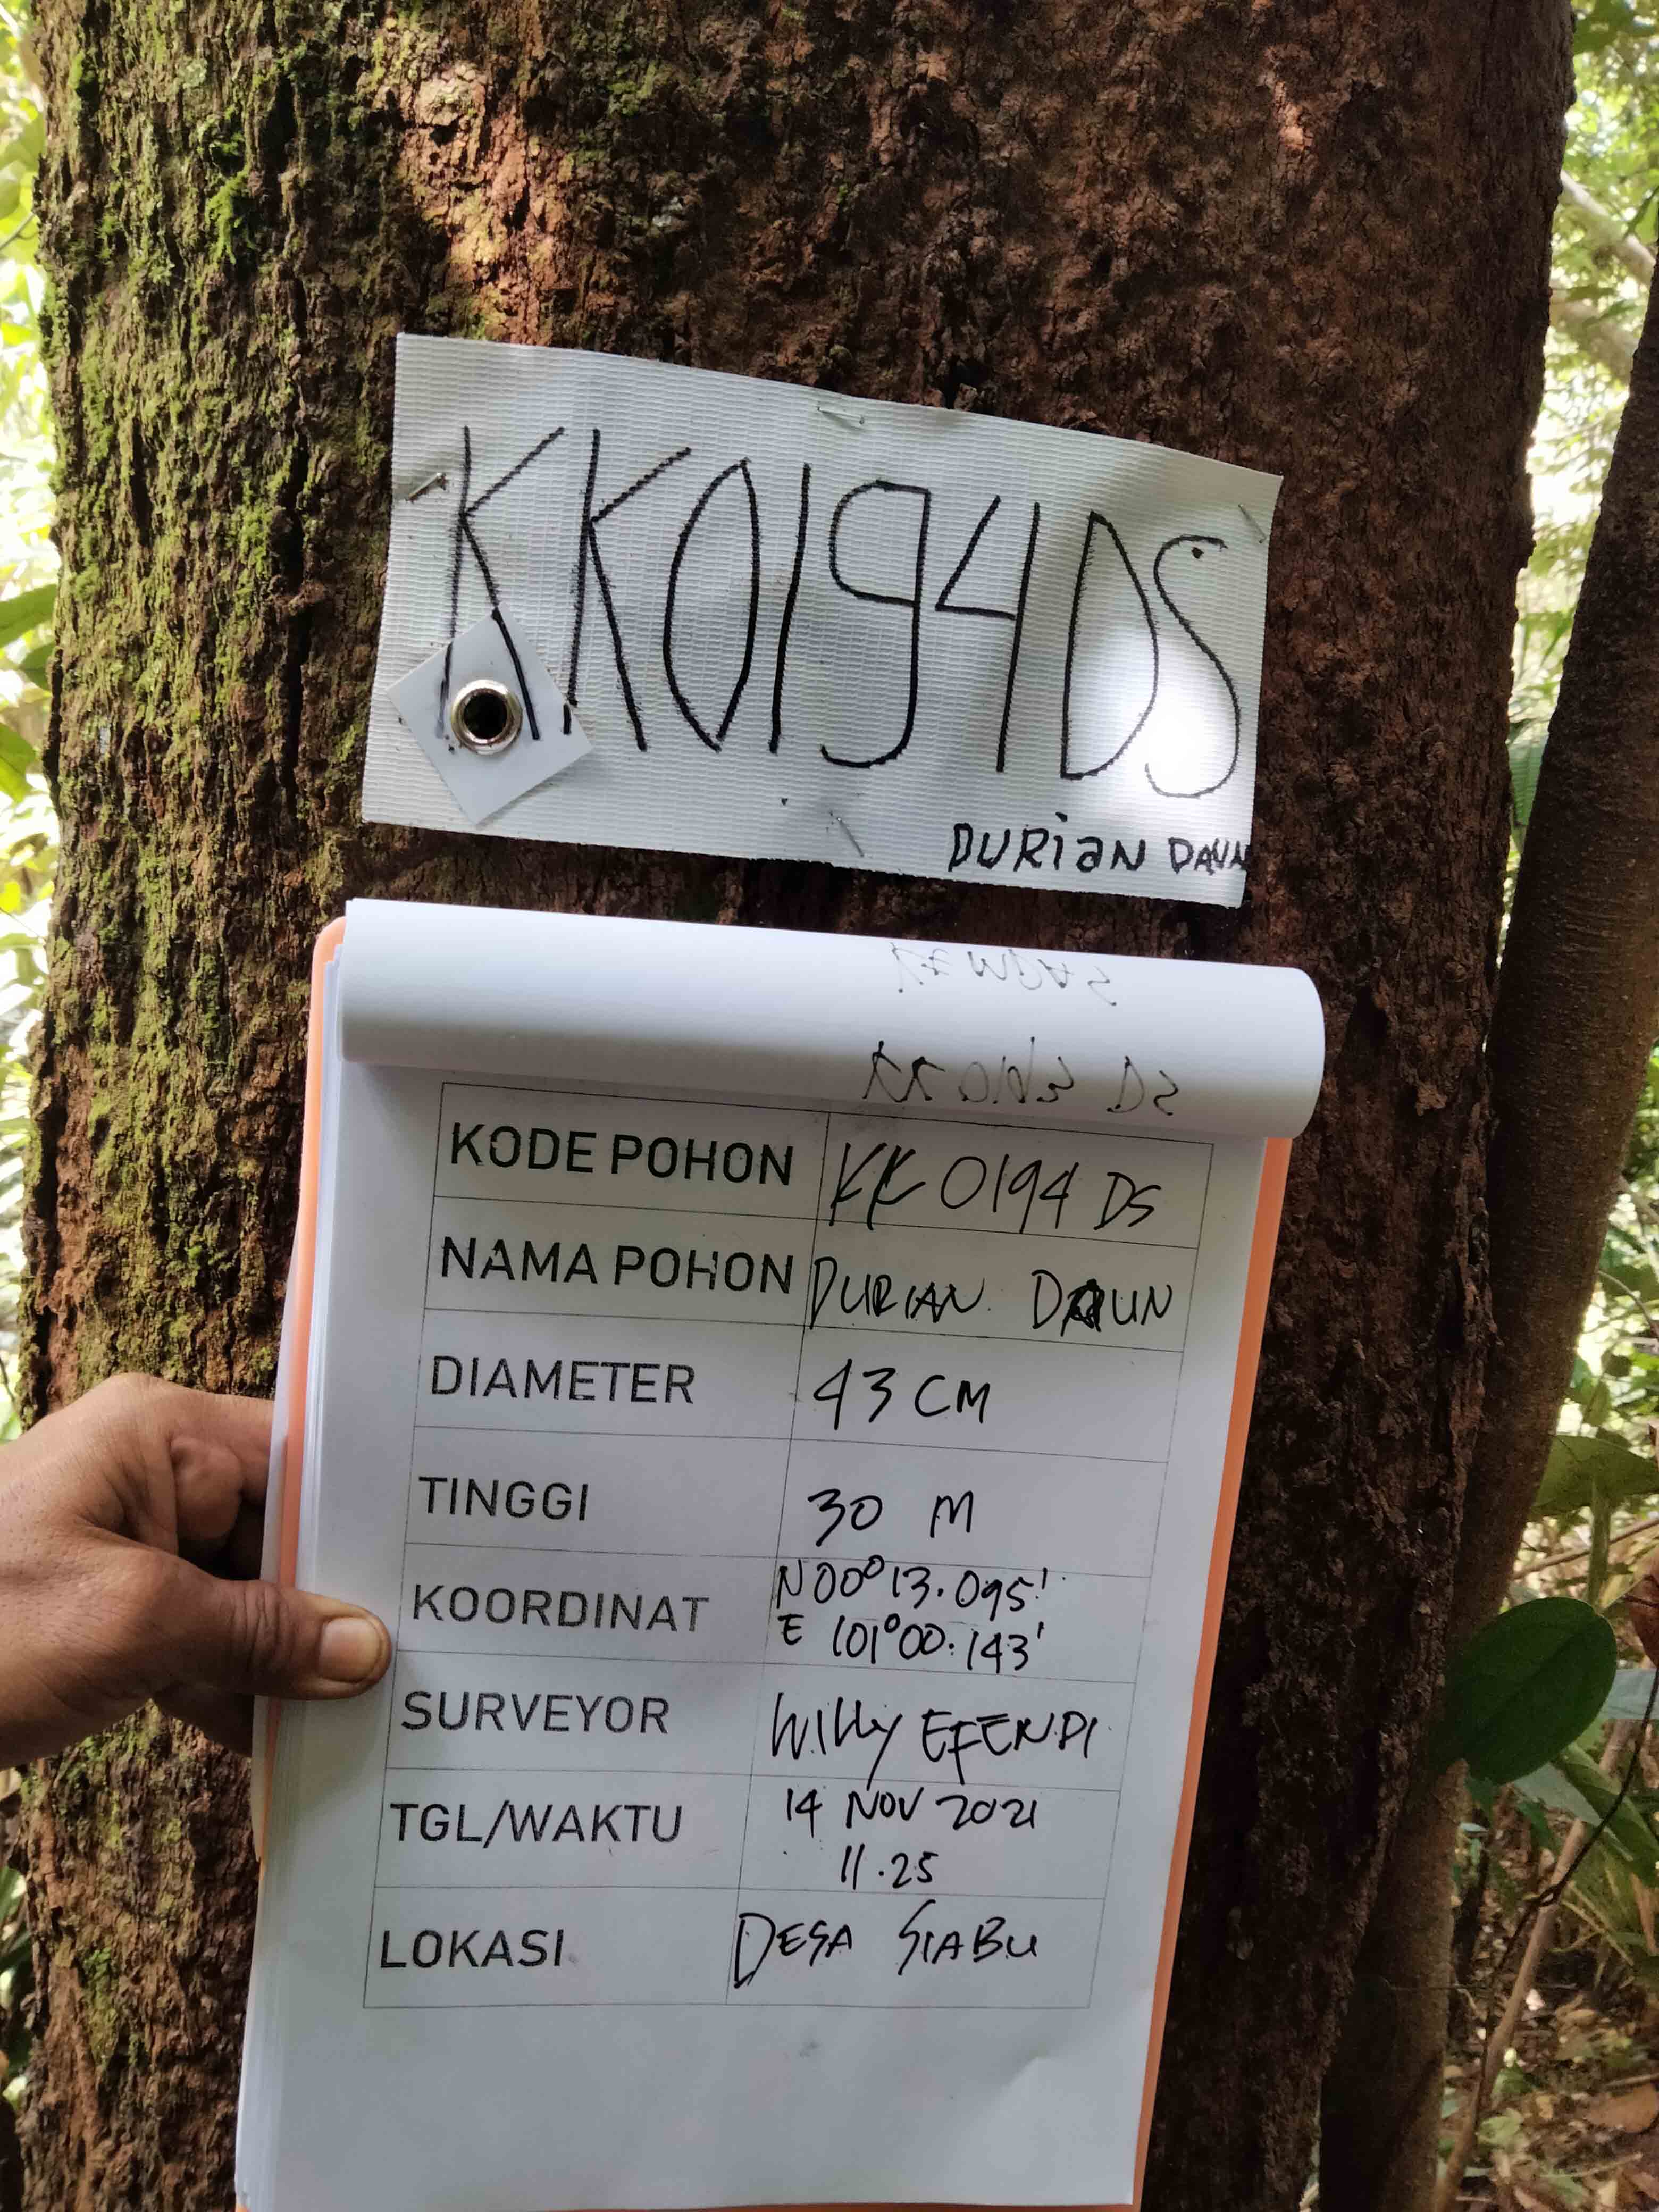 KK0194DS
DURIAN DAUN
KODE POHON KK 0194 DS
NAMA POHON DURIAN DAUN
DIAMETER 43 CM
TINGGI 30 M
KOORDINAT N00°13.095'
E 101°00.143'
SURVEYOR Willy EFENDI
TGL/WAKTU 14 NOV 2021
11.25
LOKASI DESA SIABU